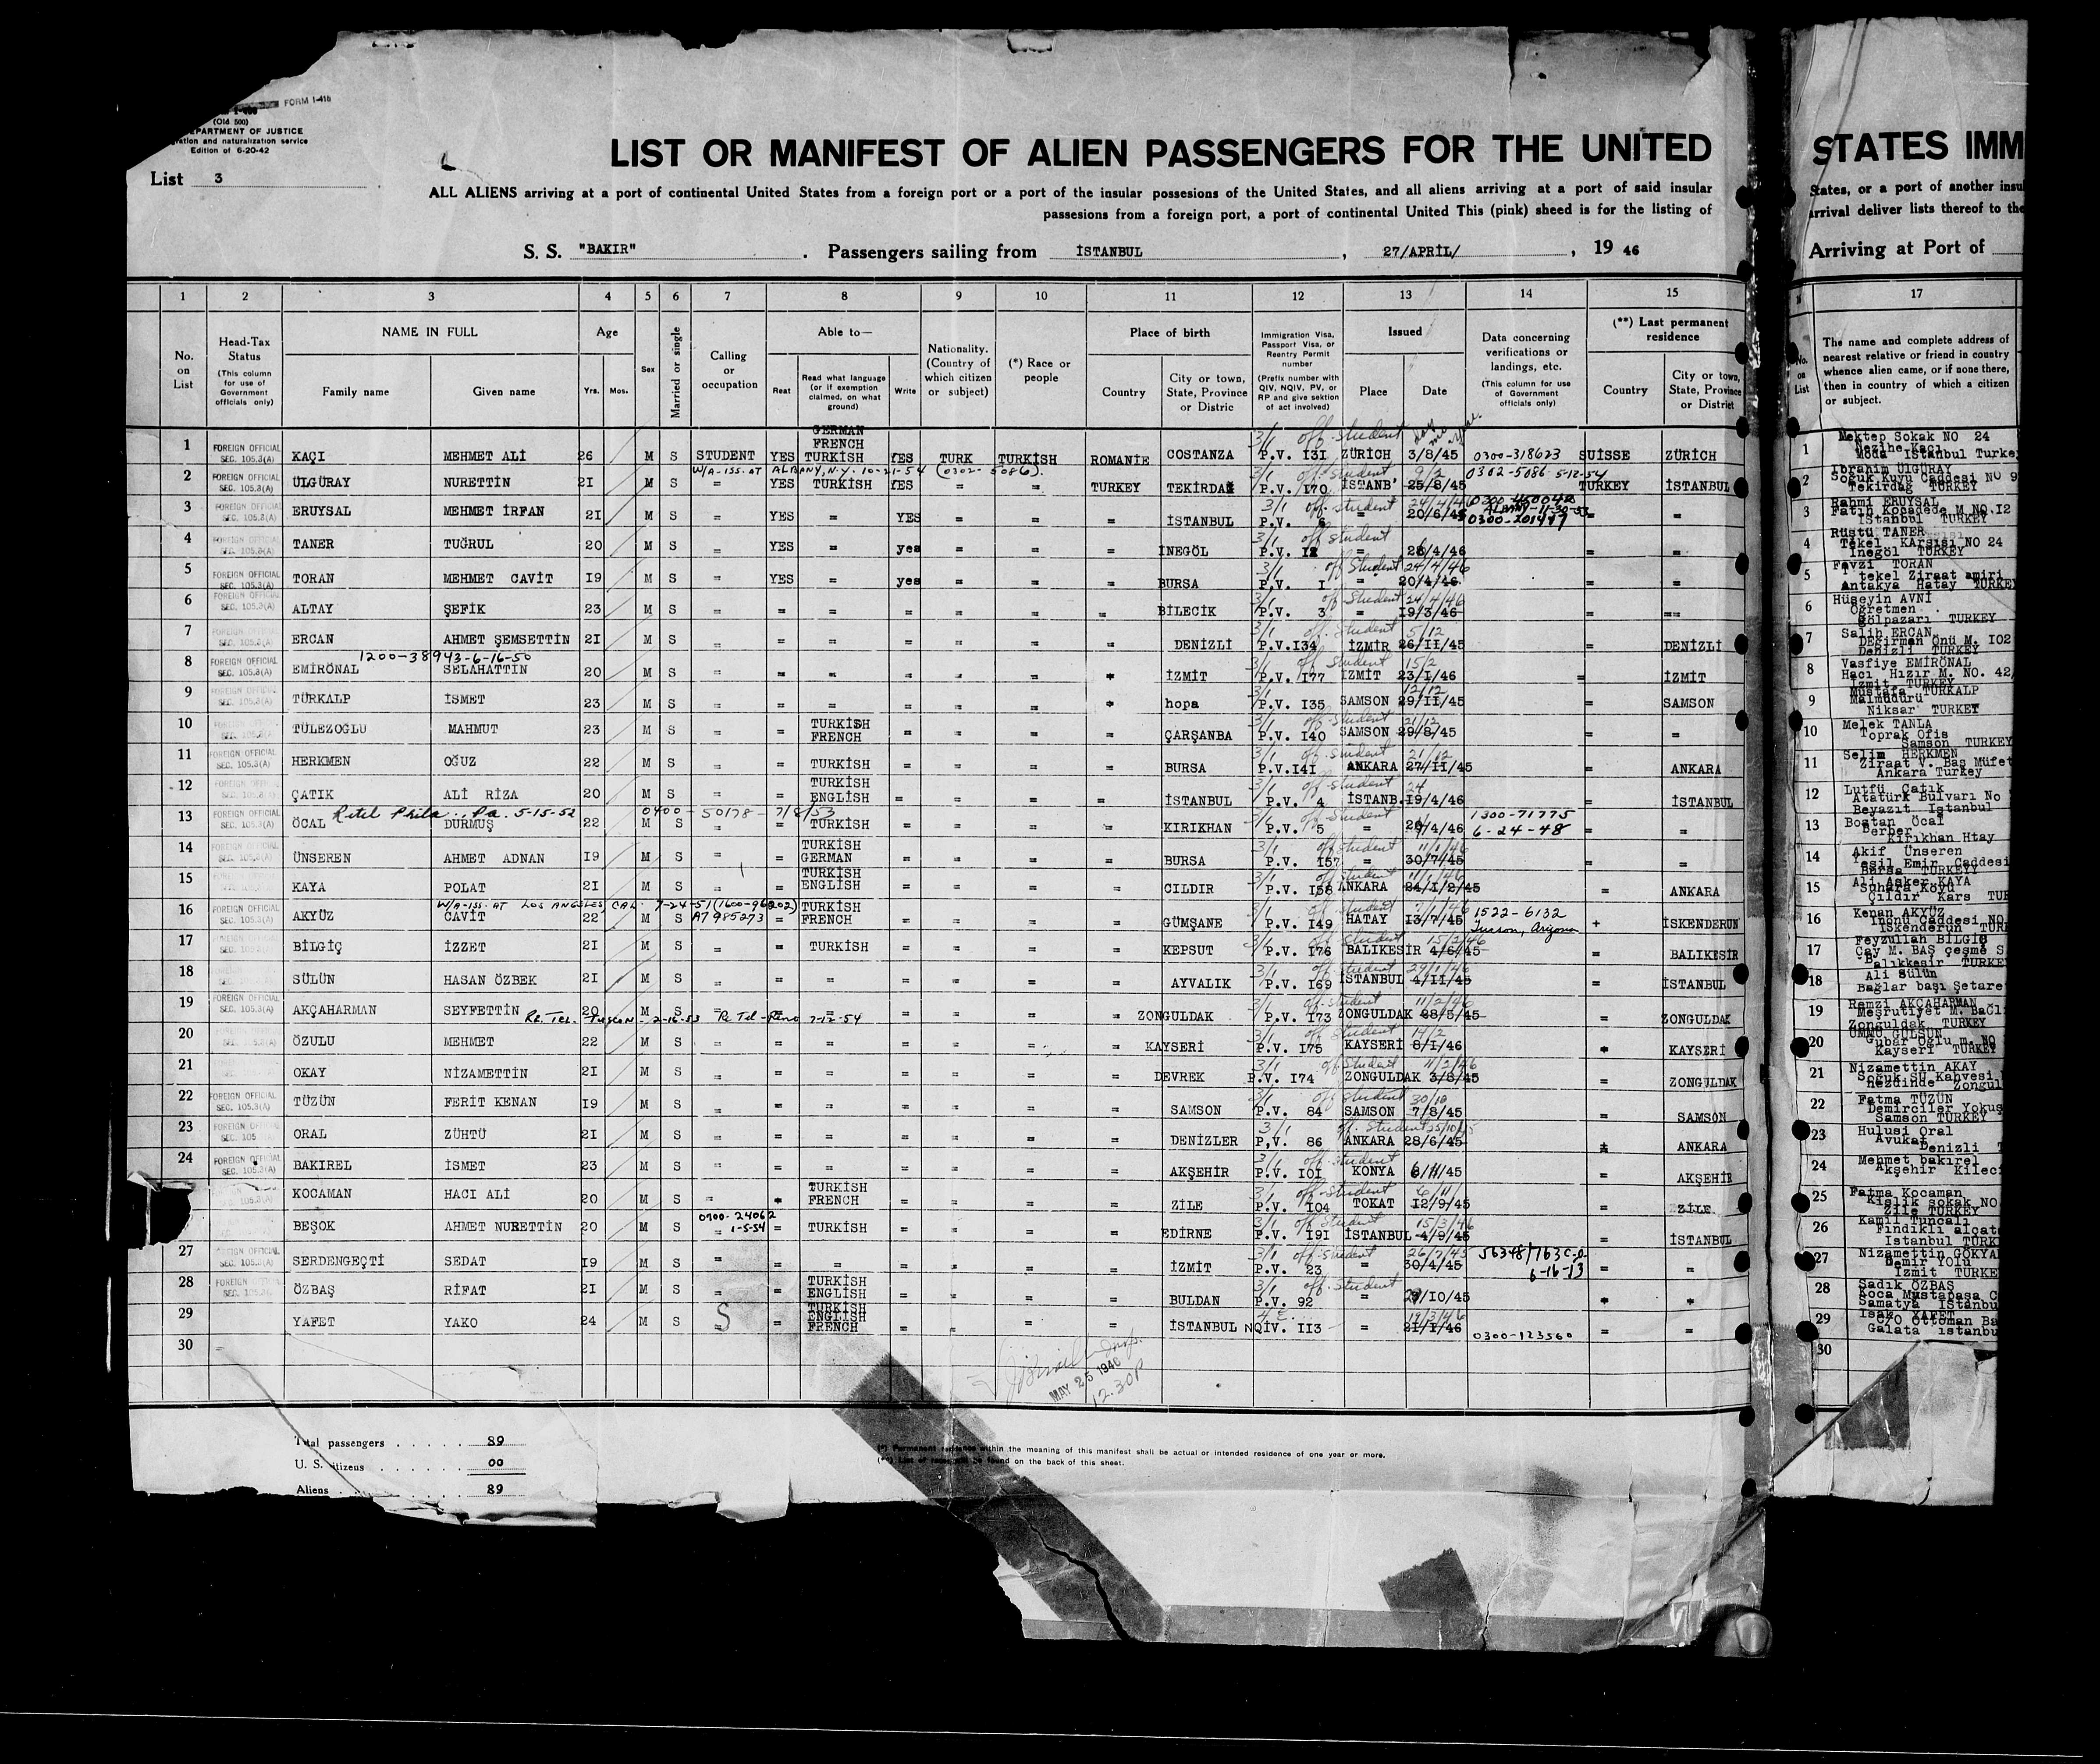 FORM I-415
(Old 500)
DEPARTMENT OF JUSTICE
Immigration and naturalization service
Edition of 6-20-42
List 3
LIST OR MANIFEST OF ALIEN PASSENGERS FOR THE UNITED
ALL ALIENS arriving at a port of continental United States from a foreign port or a port of the insular possesions of the United States, and all aliens arriving at a port of said insular
passesions from a foreign port, a port of continental United This (pink) sheed is for the listing of
S. S. "BAKIR" . Passengers sailing from İSTANBUL , 27/APRİL/ , 19 46
1 2 3 4 5 6 7 8 9 10 11 12 13 14 15
No. on List
Head-Tax Status (This column for use of Government officials only)
NAME IN FULL Family name Given name
Age Yrs. Mos.
Sex
Married or single
Calling or occupation
Able to— Reat Read what language (or if exemption claimed, on what ground) Write
Nationality. (Country of which citizen or subject)
(*) Race or people
Place of birth Country City or town, State, Province or Distric
Immigration Visa, Passport Visa, or Reentry Permit number (Prefix number with QIV, NQIV, PV, or RP and give sektion of act involved)
Issued Place Date
Data concerning verifications or landings, etc. (This column for use of Government officials only)
(**) Last permanent residence Country City or town, State, Province or District
1 FOREIGN OFFICIAL SEC. 105.3(A) KAÇI MEHMET ALİ 26 M S STUDENT YES GERMAN FRENCH TURKİSH YES TURK TURKİSH ROMANIE COSTANZA 3/1 off-student P.V. I3I ZÜRİCH 3/8/45 0300-318623 SUİSSE ZÜRİCH
W/A-ISS. AT ALBANY, N.Y. 10-21-54 (0302-5086).
2 FOREIGN OFFICIAL SEC. 105.3(A) ÜLGÜRAY NURETTİN 2I M S = YES TURKİSH YES = = TURKEY TEKİRDAĞ 3/1 off-student P.V. I70 İSTANB' 9/2 25/8/45 0302-5086 5-12-54 TURKEY İSTANBUL
3 FOREIGN OFFICIAL SEC. 105.3(A) ERUYSAL MEHMET İRFAN 2I M S = YES = YES = = = İSTANBUL 3/1 off-student P.V. 6 = 24/4/46 20/6/45 ALBANY-11-30-53 = =
4 FOREIGN OFFICIAL SEC. 105.3(A) TANER TUĞRUL 20 M S = YES = yes = = = İNEGÖL 3/1 off student P.V. I2 = 28/4/46 = =
5 FOREIGN OFFICIAL SEC. 105.3(A) TORAN MEHMET CAVİT I9 M S = YES = yes = = = BURSA 3/1 off Student P.V. I = 24/4/46 20/4/46 = =
6 FOREIGN OFFICIAL SEC. 105.3(A) ALTAY ŞEFİK 23 M S = = = = = = = BİLECİK 3/1 off Student P.V. 3 = 24/4/46 I9/3/46 = ==
7 ERCAN AHMET ŞEMSETTİN 2I M S = = = = = = DENİZLİ 3/1 off. Student P.V.I34 İZMİR 5/12 26/II/45 = DENİZLİ
1200-38943-6-16-50
8 FOREIGN OFFICIAL SEC. 105.3(A) EMİRÖNAL SELAHATTİN 20 M S = = = = = = İZMİT 3/1 off Student P.V. I77 İZMİT 15/2 23/I/46 = İZMİT
9 TÜRKALP İSMET 23 M S = = = = = = hopa 3/1 P.V. I35 SAMSON 12/12 29/II/45 = SAMSON
10 TÜLEZOĞLU MAHMUT 23 M S = = TURKİSH FRENCH = = = = ÇARŞANBA 3/1 off-student P.V. I40 SAMSON 21/12 29/8/45 = =
11 FOREIGN OFFICIAL HERKMEN OĞUZ 22 M S = = TURKİSH = = = = BURSA 3/1 off-student P.V.I4I ANKARA 21/12 27/II/45 = ANKARA
12 FOREIGN OFFICIAL ÇATIK ALİ RİZA 20 M S = = TURKİSH ENGLİSH = = = = İSTANBUL 3/1 off-student P.V. 4 İSTANB. I9/4/46 = İSTANBUL
Retel Phila., Pa. 5-15-52 0400-50178-7/8/53
13 FOREIGN OFFICIAL SEC. 105.3(A) ÖCAL DURMUŞ 22 M S = = TURKİSH = = = = KIRIKHAN P.V. 5 = 20/4/46 1300-71775 6-24-48 = =
14 ÜNSEREN AHMET ADNAN I9 M S = = TURKİSH GERMAN = = = = BURSA 3/1 off student P.V. I57 = 11/1/46 30/7/45 = =
15 KAYA POLAT 2I M S = = TURKİSH ENGLİSH = = = = CILDIR 3/1 off student P.V. I58 ANKARA 11/1/46 24/I/2/45 = ANKARA
W/A-ISS. AT LOS ANGELES, CAL. 7-24-51 (1600-96202)
16 AKYÜZ CAVİT 22 M S A7985273 = TURKİSH FRENCH = = = = GÜMŞANE 3/1 off student P.V. I49 HATAY I3/7/45 1522-6132 Tucson, Arizona + İSKENDERUN
17 BİLGİÇ İZZET 2I M S = = TURKİSH = = = = KEPSUT 3/1 off Student P.V. I76 BALIKESİR 15/2/46 4/6/45 = BALIKESİR
18 SÜLÜN HASAN ÖZBEK 2I M S = = = = = = = AYVALIK 3/1 off student P.V. I69 İSTANBUL 29/1/46 4/II/45 = İSTANBUL
19 FOREIGN OFFICIAL SEC. 105.3(A) AKÇAHARMAN SEYFETTİN 20 M S = = = = = = = ZONGULDAK 3/1 off-student P.V. I73 ZONGULDAK 11/2/46 28/5/45 = ZONGULDAK
Re. Tel. Tucson - 2-16-53 Re Tel - Reno 7-12-54
20 ÖZULU MEHMET 22 M S = = = = = = = KAYSERİ 3/1 off student P.V. I75 KAYSERİ 14/2 8/I/46 KAYSERİ
21 OKAY NİZAMETTİN 2I M S = = = = = = = DEVREK 3/1 off Student P.V. I74 ZONGULDAK 11/2/46 3/8/45 = ZONGULDAK
22 FOREIGN OFFICIAL SEC. 105.3(A) TÜZÜN FERİT KENAN I9 M S = = = = = = = SAMSON 3/1 off student P.V. 84 SAMSON 30/10 7/8/45 = SAMSON
23 FOREIGN OFFICIAL SEC. 105 ORAL ZÜHTÜ 2I M S = = = = = = = DENİZLER 3/1 off. Student P,V. 86 ANKARA 25/10/45 28/6/45 ANKARA
24 FOREIGN OFFICIAL SEC. 105.3(A) BAKIREL İSMET 23 M S = = = = = = = AKŞEHİR 3/1 off-student P.V. I0I KONYA 6/II/45 = AKŞEHİR
KOCAMAN HACI ALİ 20 M S = TURKİSH FRENCH = = = = ZİLE 3/1 off-student P.V. I04 TOKAT 6/11/ I2/9/45 = ZİLE
0700-24062 1-5-54
BEŞOK AHMET NURETTİN 20 M S = TURKİSH = = = = EDİRNE 3/1 off Student P.V. I9I İSTANBUL 15/3/46 4/9/45 = İSTANBUL
27 FOREIGN OFFICIAL SEC. 105.3(A) SERDENGEÇTİ SEDAT I9 M S = = = = = = = İZMİT 3/1 off-student P.V. 23 = 26/7/45 30/4/45 = =
28 FOREIGN OFFICIAL ÖZBAŞ RİFAT 2I M S = = TURKİSH ENGLİSH = = = = BULDAN 3/1 off-Student P.V. 92 = 29/I0/45
29 YAFET YAKO 24 M S S = TURKİSH ENGLİSH FRENCH = = = = İSTANBUL NQİV. II3 = 2I/I/46 0300-123560 = =
30
MAY 25 1946
12.30P
Total passengers . . . . . 89
U. S. citizens . . . . . . 00
Aliens . . 89
(*) Permanent residence within the meaning of this manifest shall be actual or intended residence of one year or more.
(**) List of races will be found on the back of this sheet.
STATES IMM
States, or a port of another insu
arrival deliver lists thereof to the
Arriving at Port of
17
No. on List
The name and complete address of
nearest relative or friend in country
whence alien came, or if none there,
then in country of which a citizen
or subject.
1 Mektep Sokak NO 24
Nezihe Kaçı
Moda Istanbul Turkey
2 Ibrahim ÜLGÜRAY
Soğuk Kuyu Caddesi NO 9
Tekirdağ TURKEY
3 Rahmi ERUYSAL
Fatih Kocadede M NO.I2
İStanbul TURKEY
4 Rüştü TANER
Tekel Karşısı NO 24
İnegöl TURKEY
5 Fevzi TORAN
tekel Ziraat amiri
Antakya Hatay TURKEY
6 Hüseyin AVNİ
Öğretmen
Gölpazarı TURKEY
7 Salih ERCAN
DEğirman Önü M. I02
Denizli TURKEY
8 Vasfiye EMİRÖNAL
Hacı Hızır M. NO. 42,
İzmit TURKEY
9 Mustafa TÜRKALP
Malmüdürü
Niksar TURKEY
10 Melek TANLA
Toprak Ofis
Samson TURKEY
11 Selim HERKMEN
Ziraat V. Baş Müfet
Ankara Turkey
12 Lutfü Çatık
Atatürk Bulvarı No
Beyazıt Istanbul
13 Bostan Öcal
Berber
Kırıkhan Htay
14 Akif Ünseren
Yeşil Emir Caddesi
Bursa TURKEYY
15 Ali Asker KAYA
Suhara Köyü
Çıldır Kars TUR
16 Kenan AKYÜZ
İnönü Caddesi NO.
İskenderun TUR
17 Feyzullah BİLGİÇ
Çay M. BAŞ çeşme S
Balıkkesir TURKE
18 Ali Sülün
Bağlar başı Şetare
19 Remzi AKÇAHARMAN
Meşrutiyet M. Bağlı
Zonguldak TURKEY
20 ÜMMÜ GÜLSÜN
Gubar Oğlu m. NO
Kayseri TURKEY
21 Nizamettin AKAY
Soğuk SU Kahvesi
Nezdinde Zongul
22 Fatma TÜZÜN
Demirciler Yokuş
Samson TURKEY
23 Hulusi Oral
Avukat
Denizli T
24 Mehmet bakırel
Akşehir Kileci
25 Fatma Kocaman
Kışlık sokak NO
Zile TURKEY
26 Kamil Tuncalı
Fındıklı alçat
Istanbul TURK
27 Nizamettin GÖKYA
Demir YOLU
İzmit TURKE
28 Sadık ÖZBAŞ
Koca Mustapaşa C
Samatya İStanbu
29 Isak YAFET
C/O Ottoman Ba
Galata istanbu
30